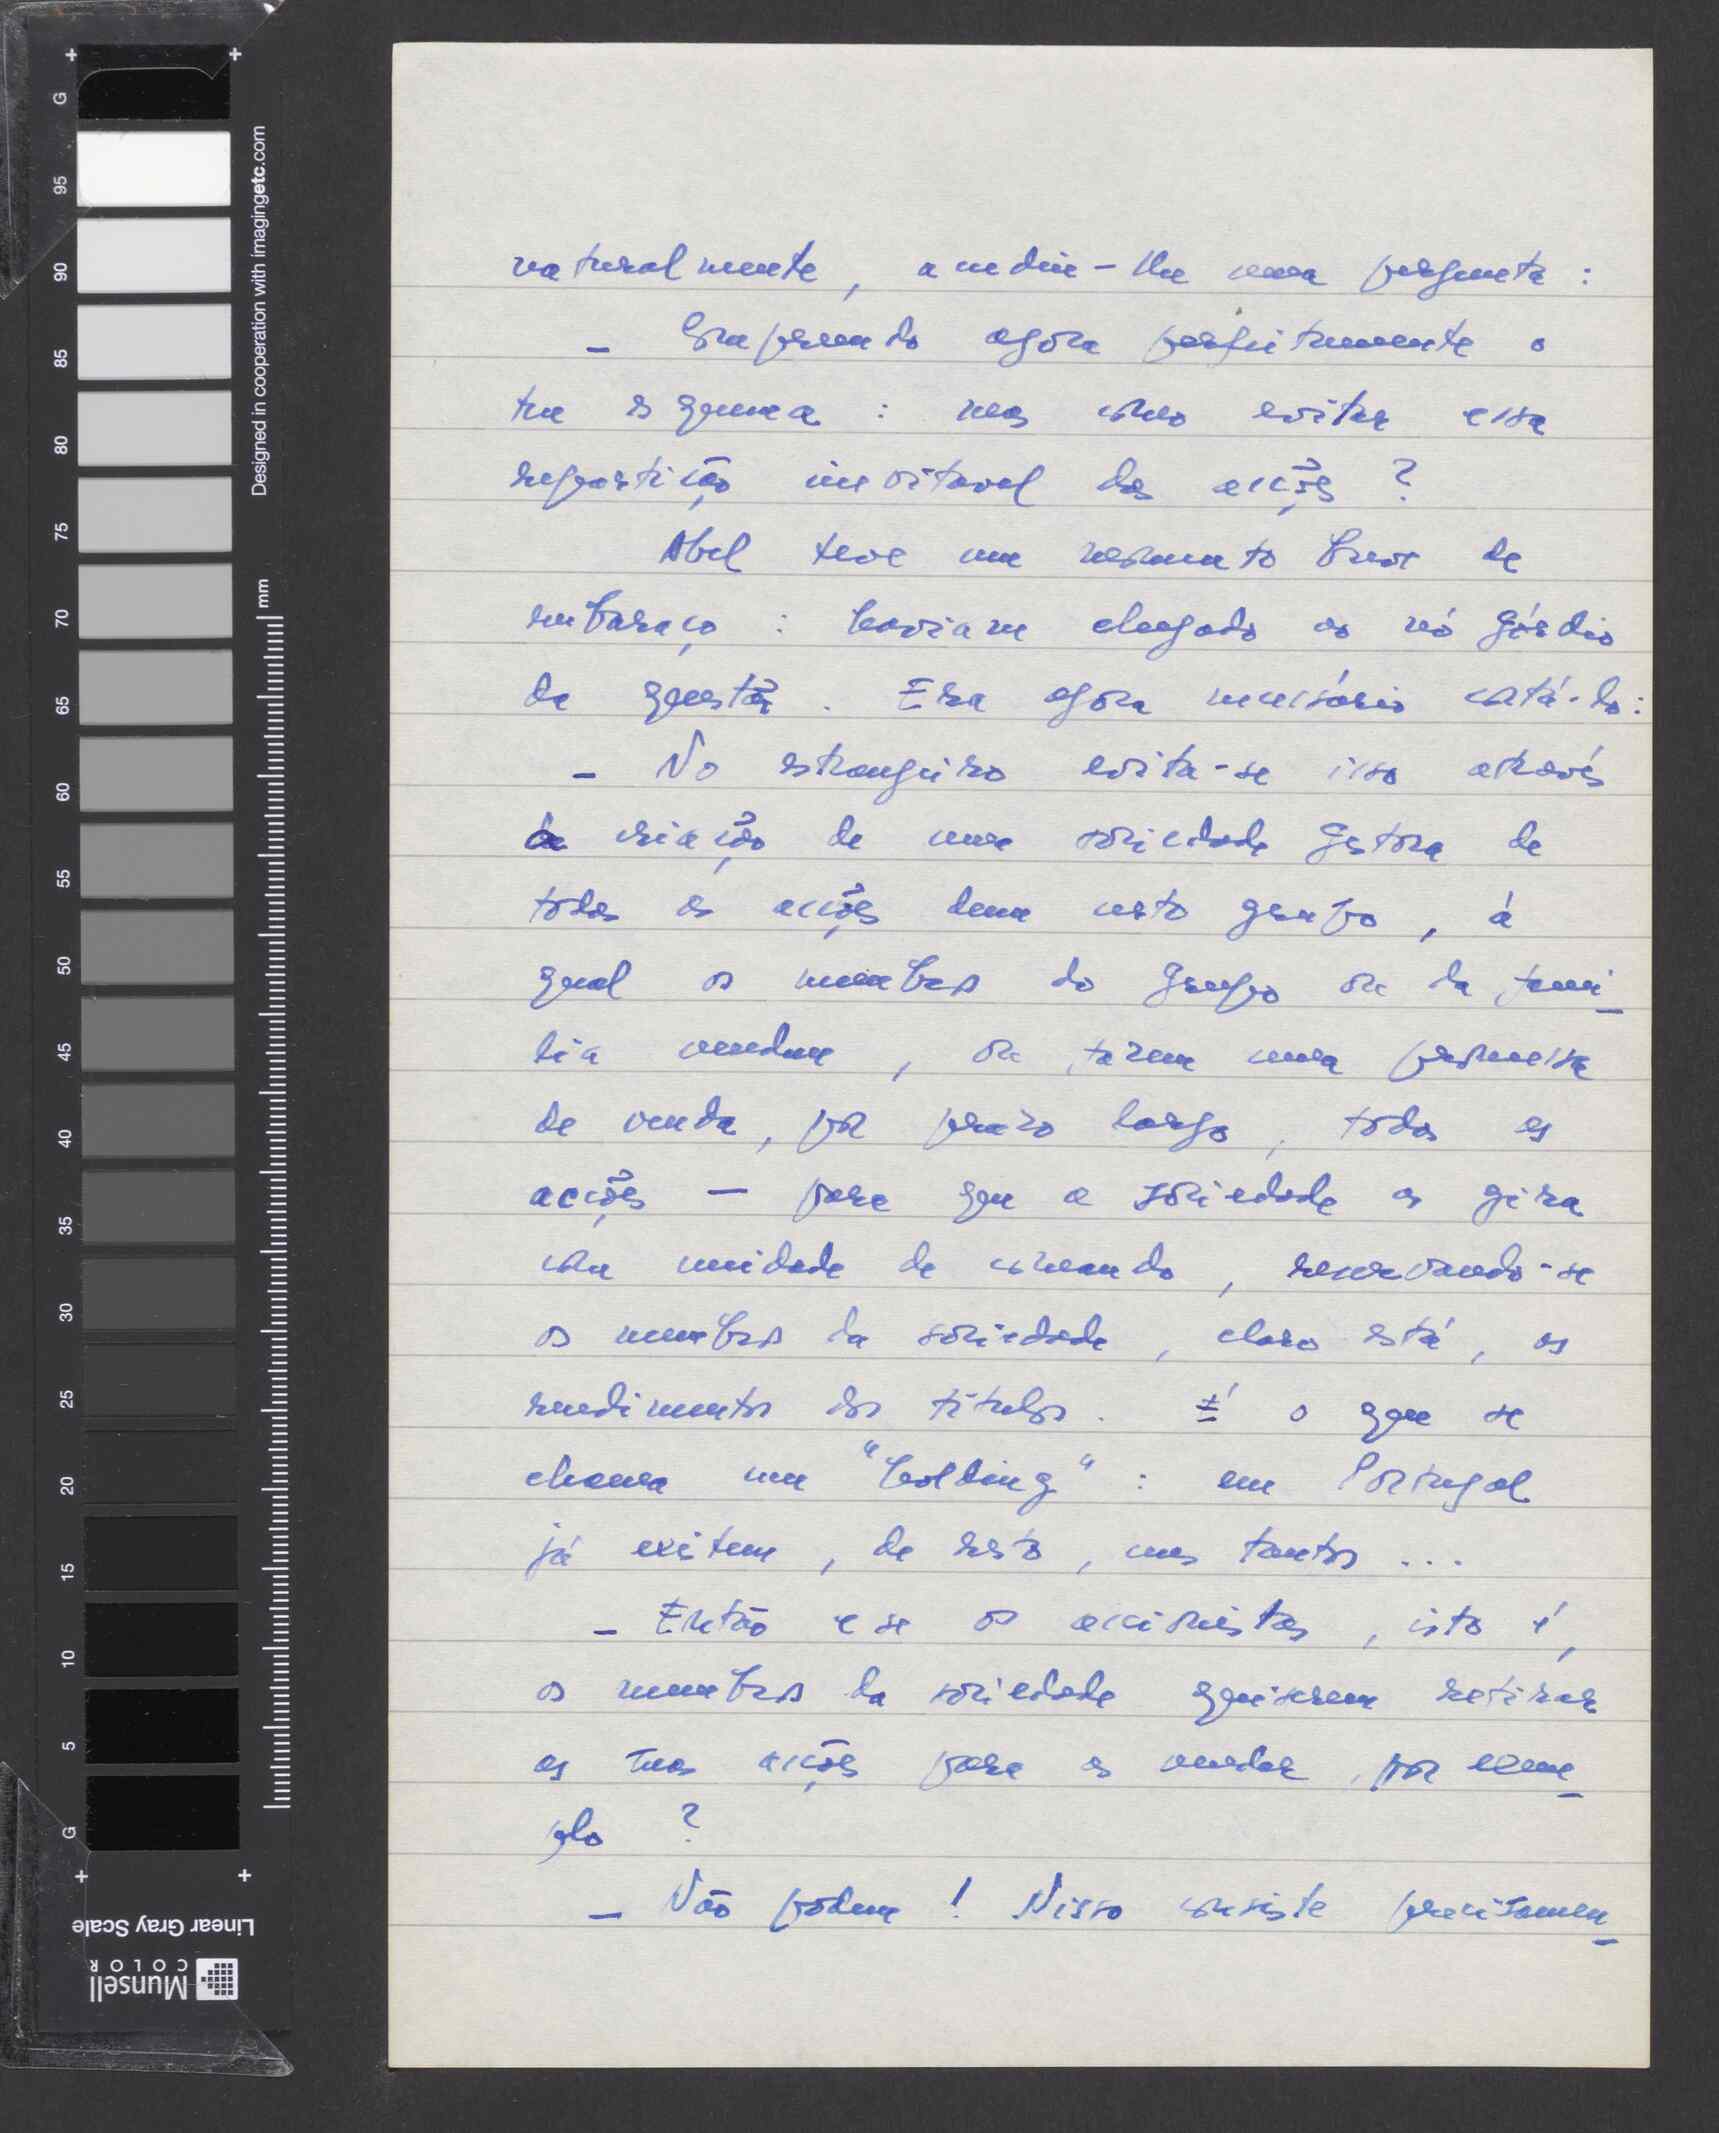 naturalmente, acudiu-lhe uma pergunta :
– Compreendo agora perfeitamente o
teu esquema : mas como evitar essa
repartição inevitável das acções ?
Abel teve um momento breve de
embaraço : haviam chegado ao nó górdio
da questão . Era agora necessário cortá-lo :
– No estrangeiro evita-se isso através
da criação de uma sociedade gestora de
todas as acções dum certo grupo , à
qual os membros do grupo ou da famí-
lia vendem , ou fazem uma promessa
de venda , por prazo largo , todas as
acções — para que a sociedade as gira
com unidade de comando , reservando-se
os membros da sociedade , claro está , os
rendimentos dos títulos . É o que se
chama um "holding" : em Portugal
já existem , de resto , uns tantos ...
– Então e se os accionistas , isto é ,
os membros da sociedade quiserem retirar
as suas acções para as vender , por exem-
plo ?
– Não podem ! Nisso consiste precisamen-
G 95 90 85 80 75 70 65 60 55 50 45 40 35 30 25 20 15 10 5 G
Designed in cooperation with imagingetc.com
mm
Linear Gray Scale
Munsell
COLOR